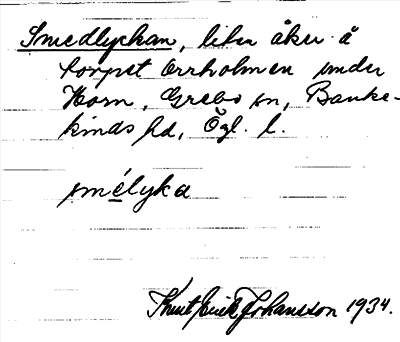 Smedlyckan, liten åker å
torpet Orrholmen under
Horn, Grebo sn, Banke-
kinds hd, Ögl. l.
smélyka
Knut Erik Johansson 1934.